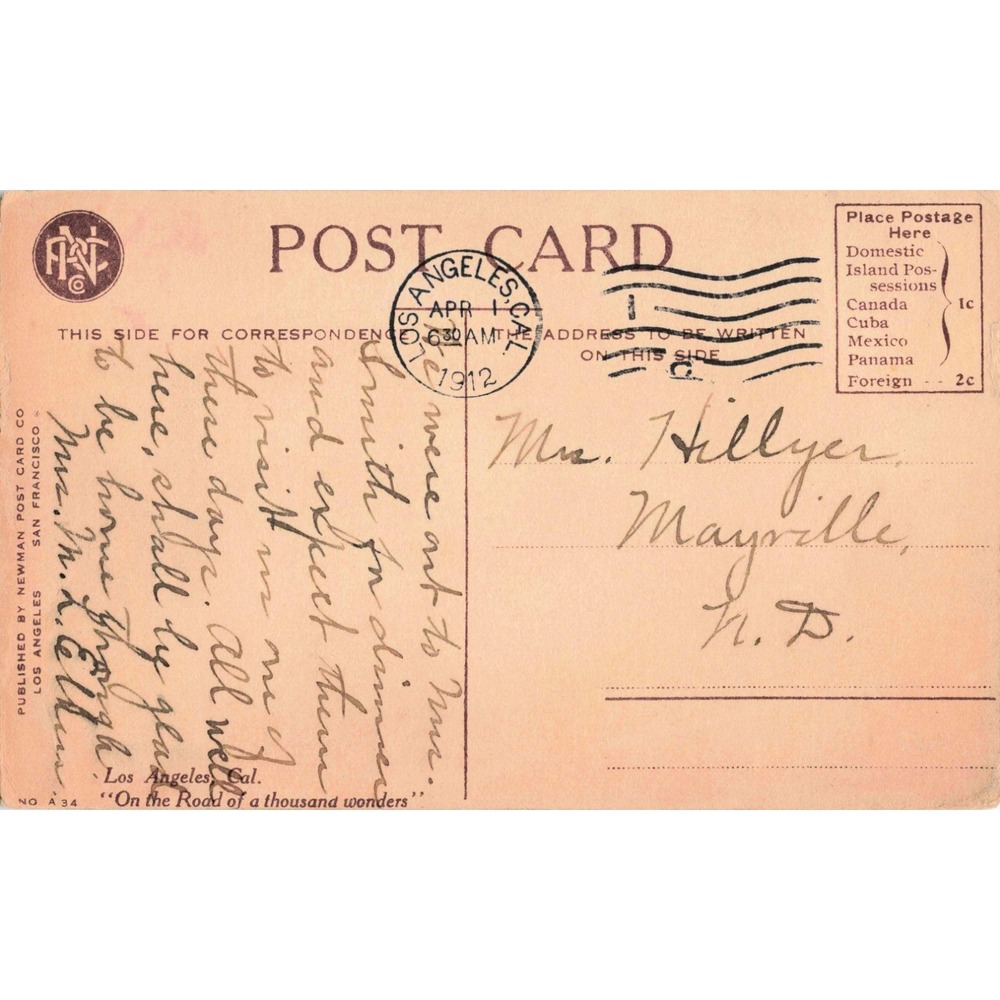 POST CARD
THIS SIDE FOR CORRESPONDENCE
THE ADDRESS TO BE WRITTEN
ON THIS SIDE
LOS ANGELES, CAL.
APR 1
630 AM
1912
1
C
Place Postage
Here
Domestic
Island Pos-
sessions
Canada
Cuba
Mexico
Panama
1c
Foreign -- 2c
We were out to Mrs.
Smith for dinner
and expect them
to visit us one of
these days. All well
here, shall be glad
to be home though.
Mrs. M. L.
Mrs. Hillyer,
Mayville,
N. D.
PUBLISHED BY NEWMAN POST CARD CO
LOS ANGELES SAN FRANCISCO
Los Angeles, Cal.
"On the Road of a thousand wonders"
NO A 34